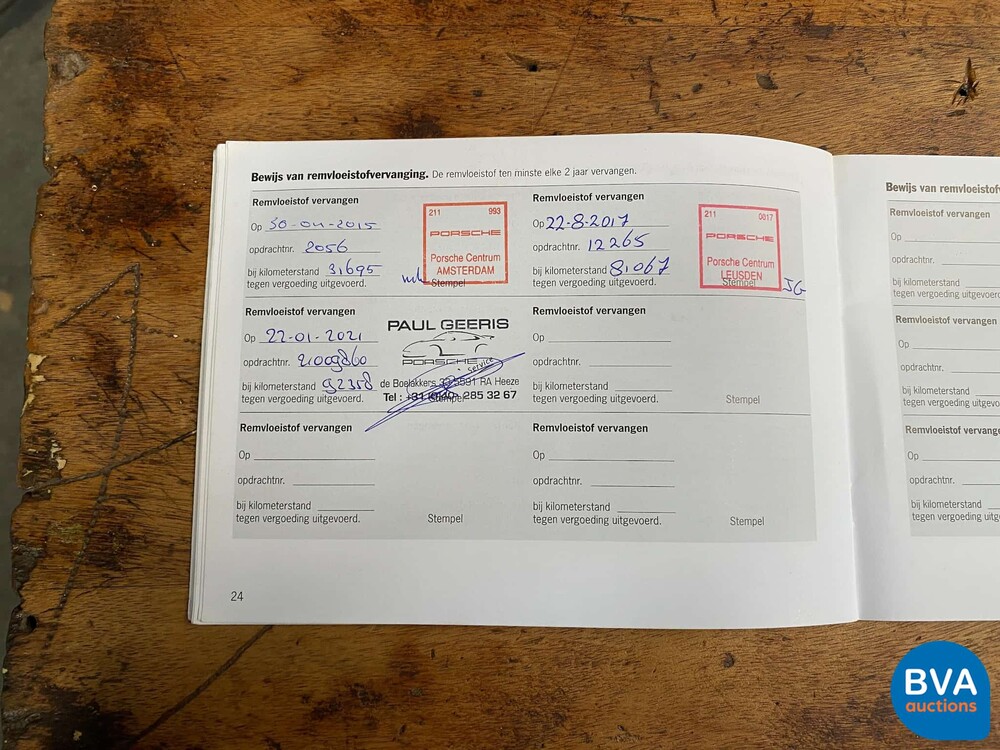 Bewijs van remvloeistofvervanging. De remvloeistof ten minste elke 2 jaar vervangen.
Remvloeistof vervangen
Op 30-04-2015
opdrachtnr. 2056
bij kilometerstand 31695
tegen vergoeding uitgevoerd.
211 993
PORSCHE
Porsche Centrum
AMSTERDAM
Stempel
Remvloeistof vervangen
Op 22-8-2017
opdrachtnr. 12265
bij kilometerstand 81067
tegen vergoeding uitgevoerd.
211 0017
PORSCHE
Porsche Centrum
LEUSDEN
Stempel
JG
Remvloeistof vervangen
Op 22-01-2021
opdrachtnr. 21009860
bij kilometerstand 92358
tegen vergoeding uitgevoerd.
PAUL GEERIS
PORSCHE service
de Boelakkers 5591 RA Heeze
Tel : +31 (0)40- 285 32 67
Stempel
Remvloeistof vervangen
Op
opdrachtnr.
bij kilometerstand
tegen vergoeding uitgevoerd.
Stempel
Remvloeistof vervangen
Op
opdrachtnr.
bij kilometerstand
tegen vergoeding uitgevoerd.
Stempel
Remvloeistof vervangen
Op
opdrachtnr.
bij kilometerstand
tegen vergoeding uitgevoerd.
Stempel
24
Bewijs van remvloeistofv
Remvloeistof vervangen
Op
opdrachtnr.
bij kilometerstand
tegen vergoeding uitgevoerd
Remvloeistof vervangen
Op
opdrachtnr.
bij kilometerstand
tegen vergoeding uitgevo
Remvloeistof vervangen
Op
opdrachtnr.
bij kilometerstand
tegen vergoeding uitge
BVA
auctions